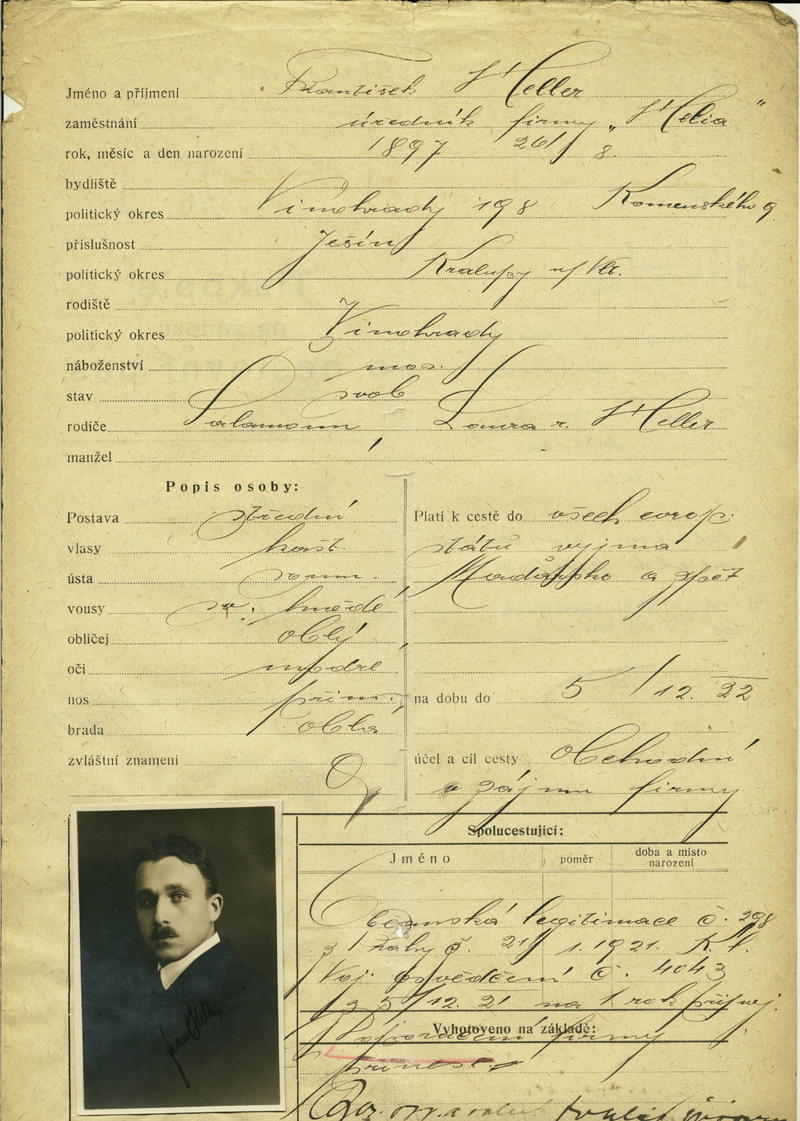 Jméno a příjmení František Heller
zaměstnání úředník firmy „Helia"
rok, měsíc a den narození 1897 26/8.
bydliště
politický okres Vinohrady 198 Komenského 9
příslušnost Ješín
politický okres Kralupy n/Vlt.
rodiště
politický okres Vinohrady
náboženství mos.
stav svob.
rodiče Salamoun Laura r. Heller
manžel
Popis osoby:
Postava střední
vlasy kašt.
ústa
vousy sv. hnědé
obličej oblý
oči modré
nos přim.
brada oblá
zvláštní znamení
Platí k cestě do všech evrop.
států vyjma
Maďarsko a zpět
na dobu do 5/12. 22
účel a cíl cesty obchodní
v zájmu firmy
Spolucestující:
Jméno poměr doba a místo narození
Občanská legitimace č. 298
21/1. 1921.
Voj. osvědčení č. 4043
z 5/12. 21 na 1 rok
Vyhotoveno na základě:
firmy